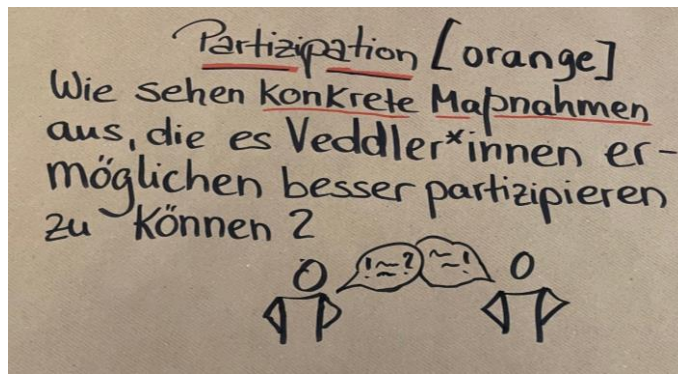 Partizipation [orange]
Wie sehen konkrete Maßnahmen
aus, die es Veddler*innen er-
möglichen besser partizipieren
zu können?
!~? ~!